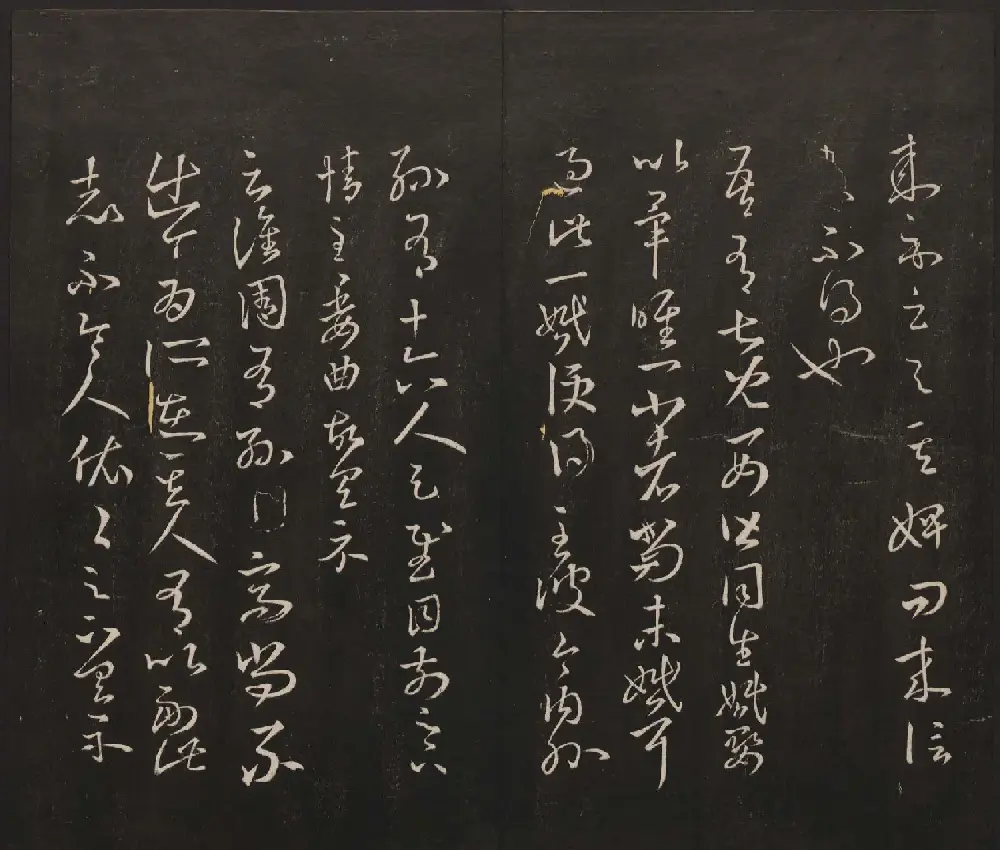 來示云與其婢問來信
不得也
吾有七兒一女皆同生婚娶
以畢唯一小者尚未婚耳
過此一婚便得至彼今內外
孫有十六人足慰目前足下
情至委曲故具示
云譙周有孫高尚不
出今為所在其人有以副此
志不令人依依足下具示